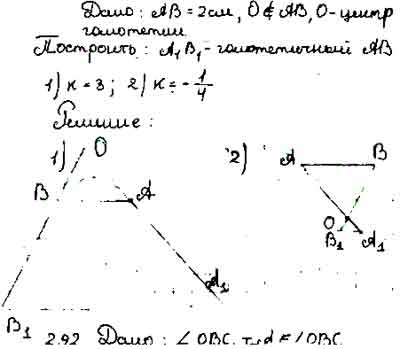 Дано: AB = 2см, O ∉ AB, O - центр
гомотетии.
Построить: A₁B₁ - гомотетичный AB
1) к = 3; 2) к = -1/4
Решение:
1) O
2) A B
B A
O
B₁ A₁
A₁
B₁
2.92 Дано: ∠OBC,